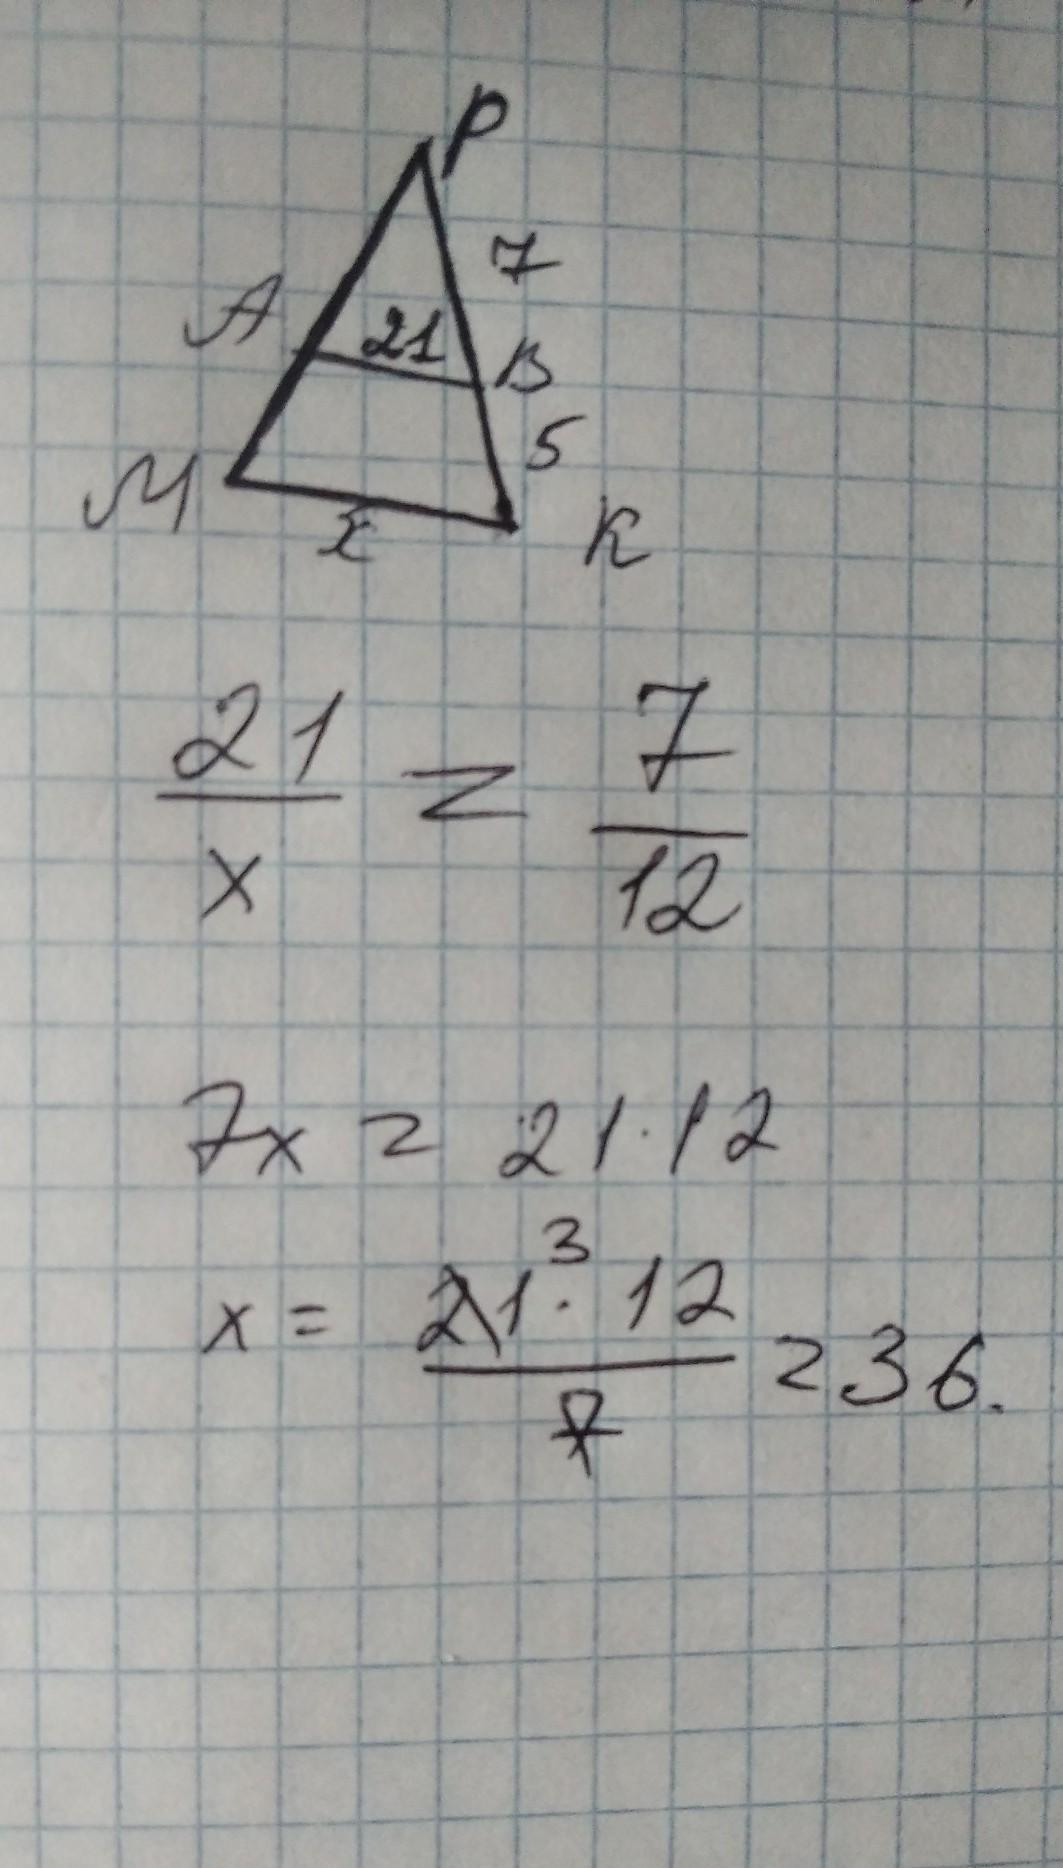 P
7
A
21
B
5
M
x
K
21/x = 7/12
7x = 21·12
x = 21³·12/7 = 36.